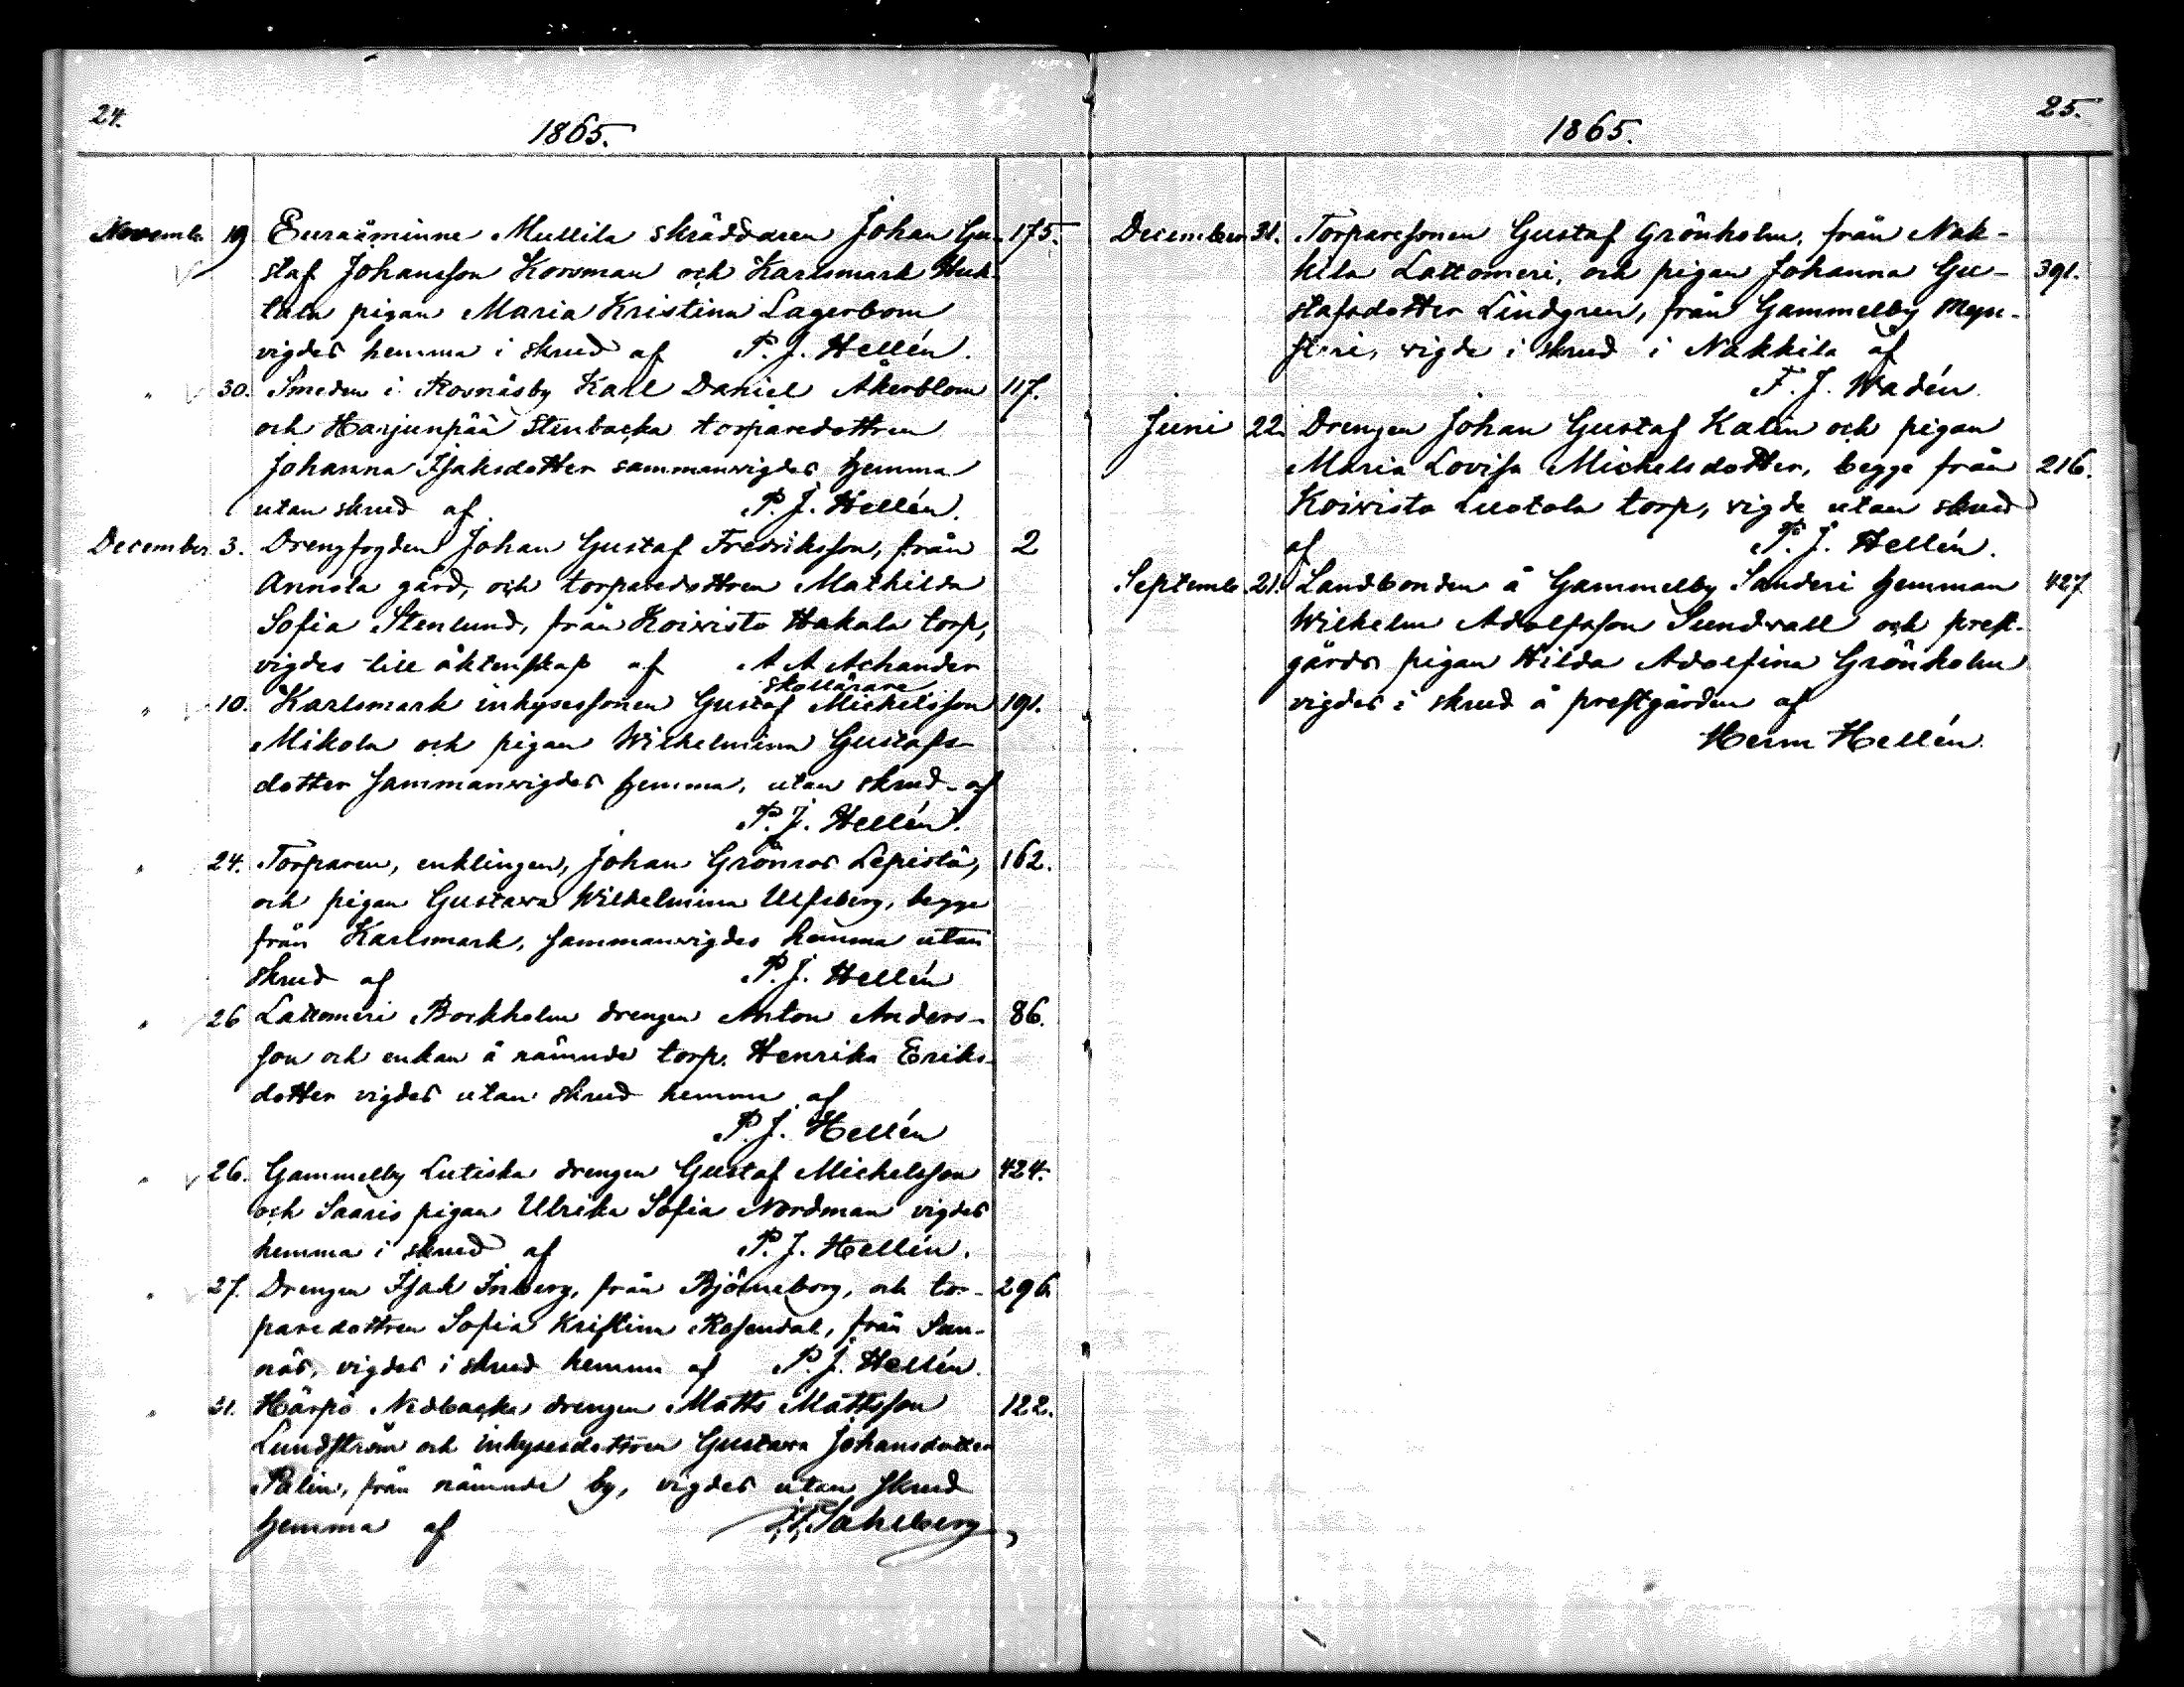 24.
1865.
November 19 Euraåminne Mullila skräddaren Johan Gu- 175.
staf Johansson Korsman och Karlsmark Huk-
tala pigan Maria Kristina Lagerbom
vigdes hemma i skrud af P. J. Hellén.
" 30. Smeden i Rosnäsby Karl Daniel Åkerblom 117.
och Harjunpää Stenbacka torparedottren
Johanna Isaksdotter sammanvigdes hemma
utan skrud af P. J. Hellén.
December 3. Drengfogden Johan Gustaf Fredriksson, från 2
Annola gård, och torparedottren Mathilda
Sofia Stenlund, från Koivisto Hakala torp,
vigdes till äktenskap af A A Achander
skollärare
" 10. Karlsmark inhysessonen Gustaf Michelsson 191.
Mikola och pigan Wilhelmina Gustafs-
dotter sammanvigdes hemma, utan skrud af
P. J. Hellén.
" 24. Torparen, enklingen, Johan Grönroos Lepistö, 162.
och pigan Gustava Wilhelmina Ulfsberg, begge
från Karlsmark, sammanvigdes hemma utan
skrud af P. J. Hellén
" 26 Lattomeri Bockholm drengen Anton Anders- 86.
son och enkan å nämnde torp. Henrika Eriks-
dotter vigdes utan skrud hemma af
P. J. Hellén
" 26. Gammelby Lutiska drengen Gustaf Michelsson 424.
och Saaris pigan Ulrika Sofia Nordman vigdes
hemma i skrud af P. J. Hellén.
" 27. Drengen Isak Inberg, från Björneborg, och tor- 296
paredottren Sofia Kristina Rosendal, från Sun-
näs, vigdes i skrud hemma af P. J. Hellén.
" 31. Härpö Nedbacka drengen Matts Mattsson 122.
Lundström och inhysesdottren Gustava Johansdotter
Palin, från nämnde by, vigdes utan skrud
hemma af Sahlberg
25.
1865.
December 31. Torparesonen Gustaf Grönholm, från Nak-
kila Lattomeri, och pigan Johanna Gu- 391.
stafsdotter Lindgren, från Gammelby
vigde i skrud i Nakkila af
F. J. Wadén
Juni 22. Drengen Johan Gustaf Kalin och pigan
Maria Lovisa Michelsdotter, begge från 216.
Koivisto Luotola torp, vigde utan skrud
af P. J. Hellén.
Septemb. 21. Landbonden å Gammelby Sanderi hemman 427
Wilhelm Adolfsson Sundvall och prest-
gårds pigan Hilda Adolfina Grönholm
vigdes i skrud å prestgården af
Herm Hellén.